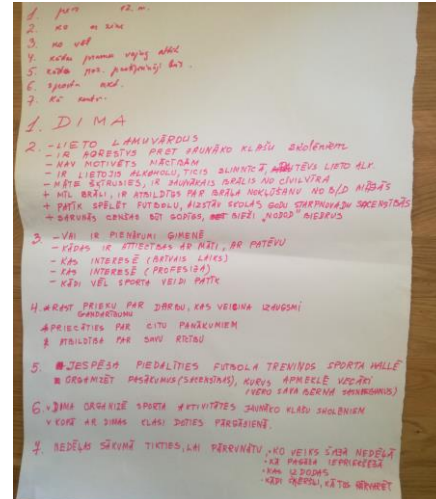 1.
2. KO
3. KO vēl
4.
5.
6. sporta
7. Kā
1. DIMA
2. - LIETO LAMUVĀRDUS
- IR AGRESĪVS PRET JAUNĀKO KLAŠU SKOLĒNIEM
- NAV MOTIVĒTS MĀCĪBĀM
- IR LIETOJIS ALKOHOLU, TICIS SLIMNĪCĀ, TĒVS LIETO ALK.
- MĀTE ŠĶĪRUSIES, IR JAUNĀKAIS BRĀLIS NO CIVILVĪRA
+ MĪL BRĀLI, IR ATBILDĪGS PAR BRĀĻA NOKĻŪŠANU NO B/D MĀJĀS
+ PATĪK SPĒLĒT FUTBOLU, AIZSTĀV SKOLAS GODU STARPNOVADU SACENSĪBĀS
+ SARUNĀS CENŠAS BŪT GODĪGS, BIEŽI "NODOD" BIEDRUS
3. - VAI IR PIENĀKUMI ĢIMENĒ
- KĀDAS IR ATTIECĪBAS AR MĀTI, AR PATĒVU
- KAS INTERESĒ (BRĪVAIS LAIKS)
- KAS INTERESĒ (PROFESIJA)
- KĀDI VĒL SPORTA VEIDI PATĪK
4. RAST PRIEKU PAR DARBU, KAS VEICINA IZAUGSMI
GANDARĪJUMU
PRIECĀTIES PAR CITU PANĀKUMIEM
ATBILDĪBA PAR SAVU RĪCĪBU
5. IESPĒJA PIEDALĪTIES FUTBOLA TRENIŅOS SPORTA HALLĒ
ORGANIZĒT PASĀKUMUS (SACENSĪBAS), KURUS APMEKLĒ VECĀKI
(VĒRO SAVA BĒRNA SASNIEGUMUS)
6. v DIMA ORGANIZĒ SPORTA AKTIVITĀTES JAUNĀKO KLAŠU SKOLĒNIEM
v KOPĀ AR DIMAS KLASI DOTIES PĀRGĀJIENĀ.
7. NEDĒĻAS SĀKUMĀ TIKTIES, LAI PĀRRUNĀTU - KO VEIKS ŠAJĀ NEDĒĻĀ
- KĀ PAGĀJA IEPRIEKŠĒJĀ
- KAS IZDODAS
- KĀDI ŠĶĒRŠĻI, KĀ TOS PĀRVARĒT